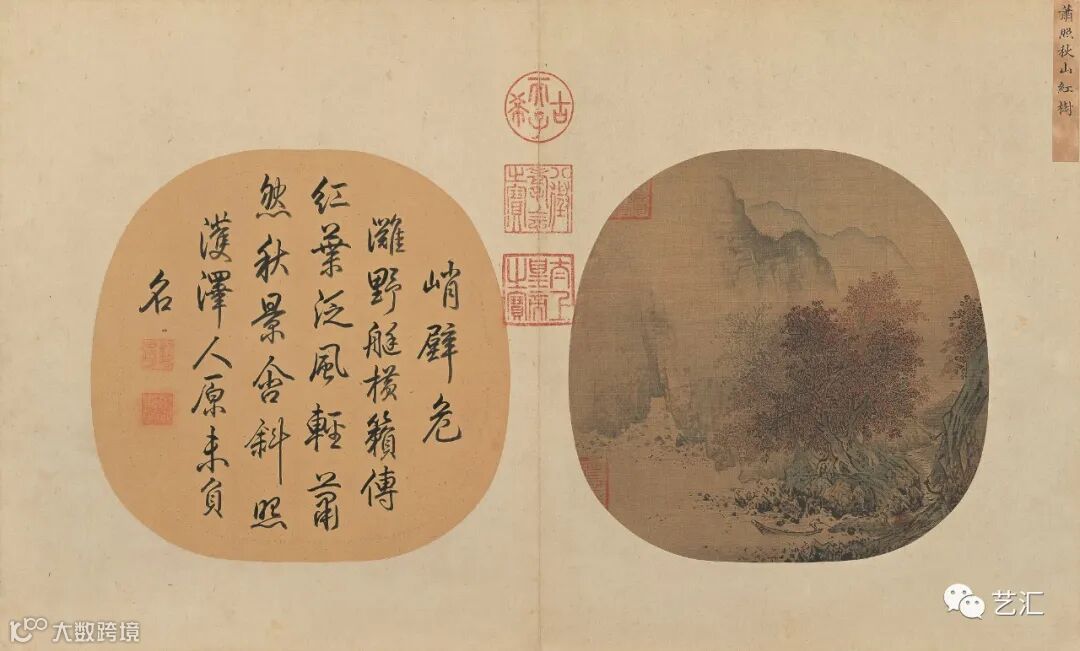 蕭照秋山紅樹
古希天子
八徵耄念之寶
太上皇帝之寶
峭壁危
灘野艇橫籟傳
紅葉泛風輕蕭
然秋景含斜照
濩澤人原未負
名
艺汇
大数跨境